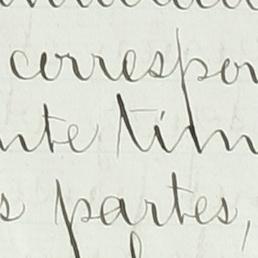 correspon
nte tim
s partes,